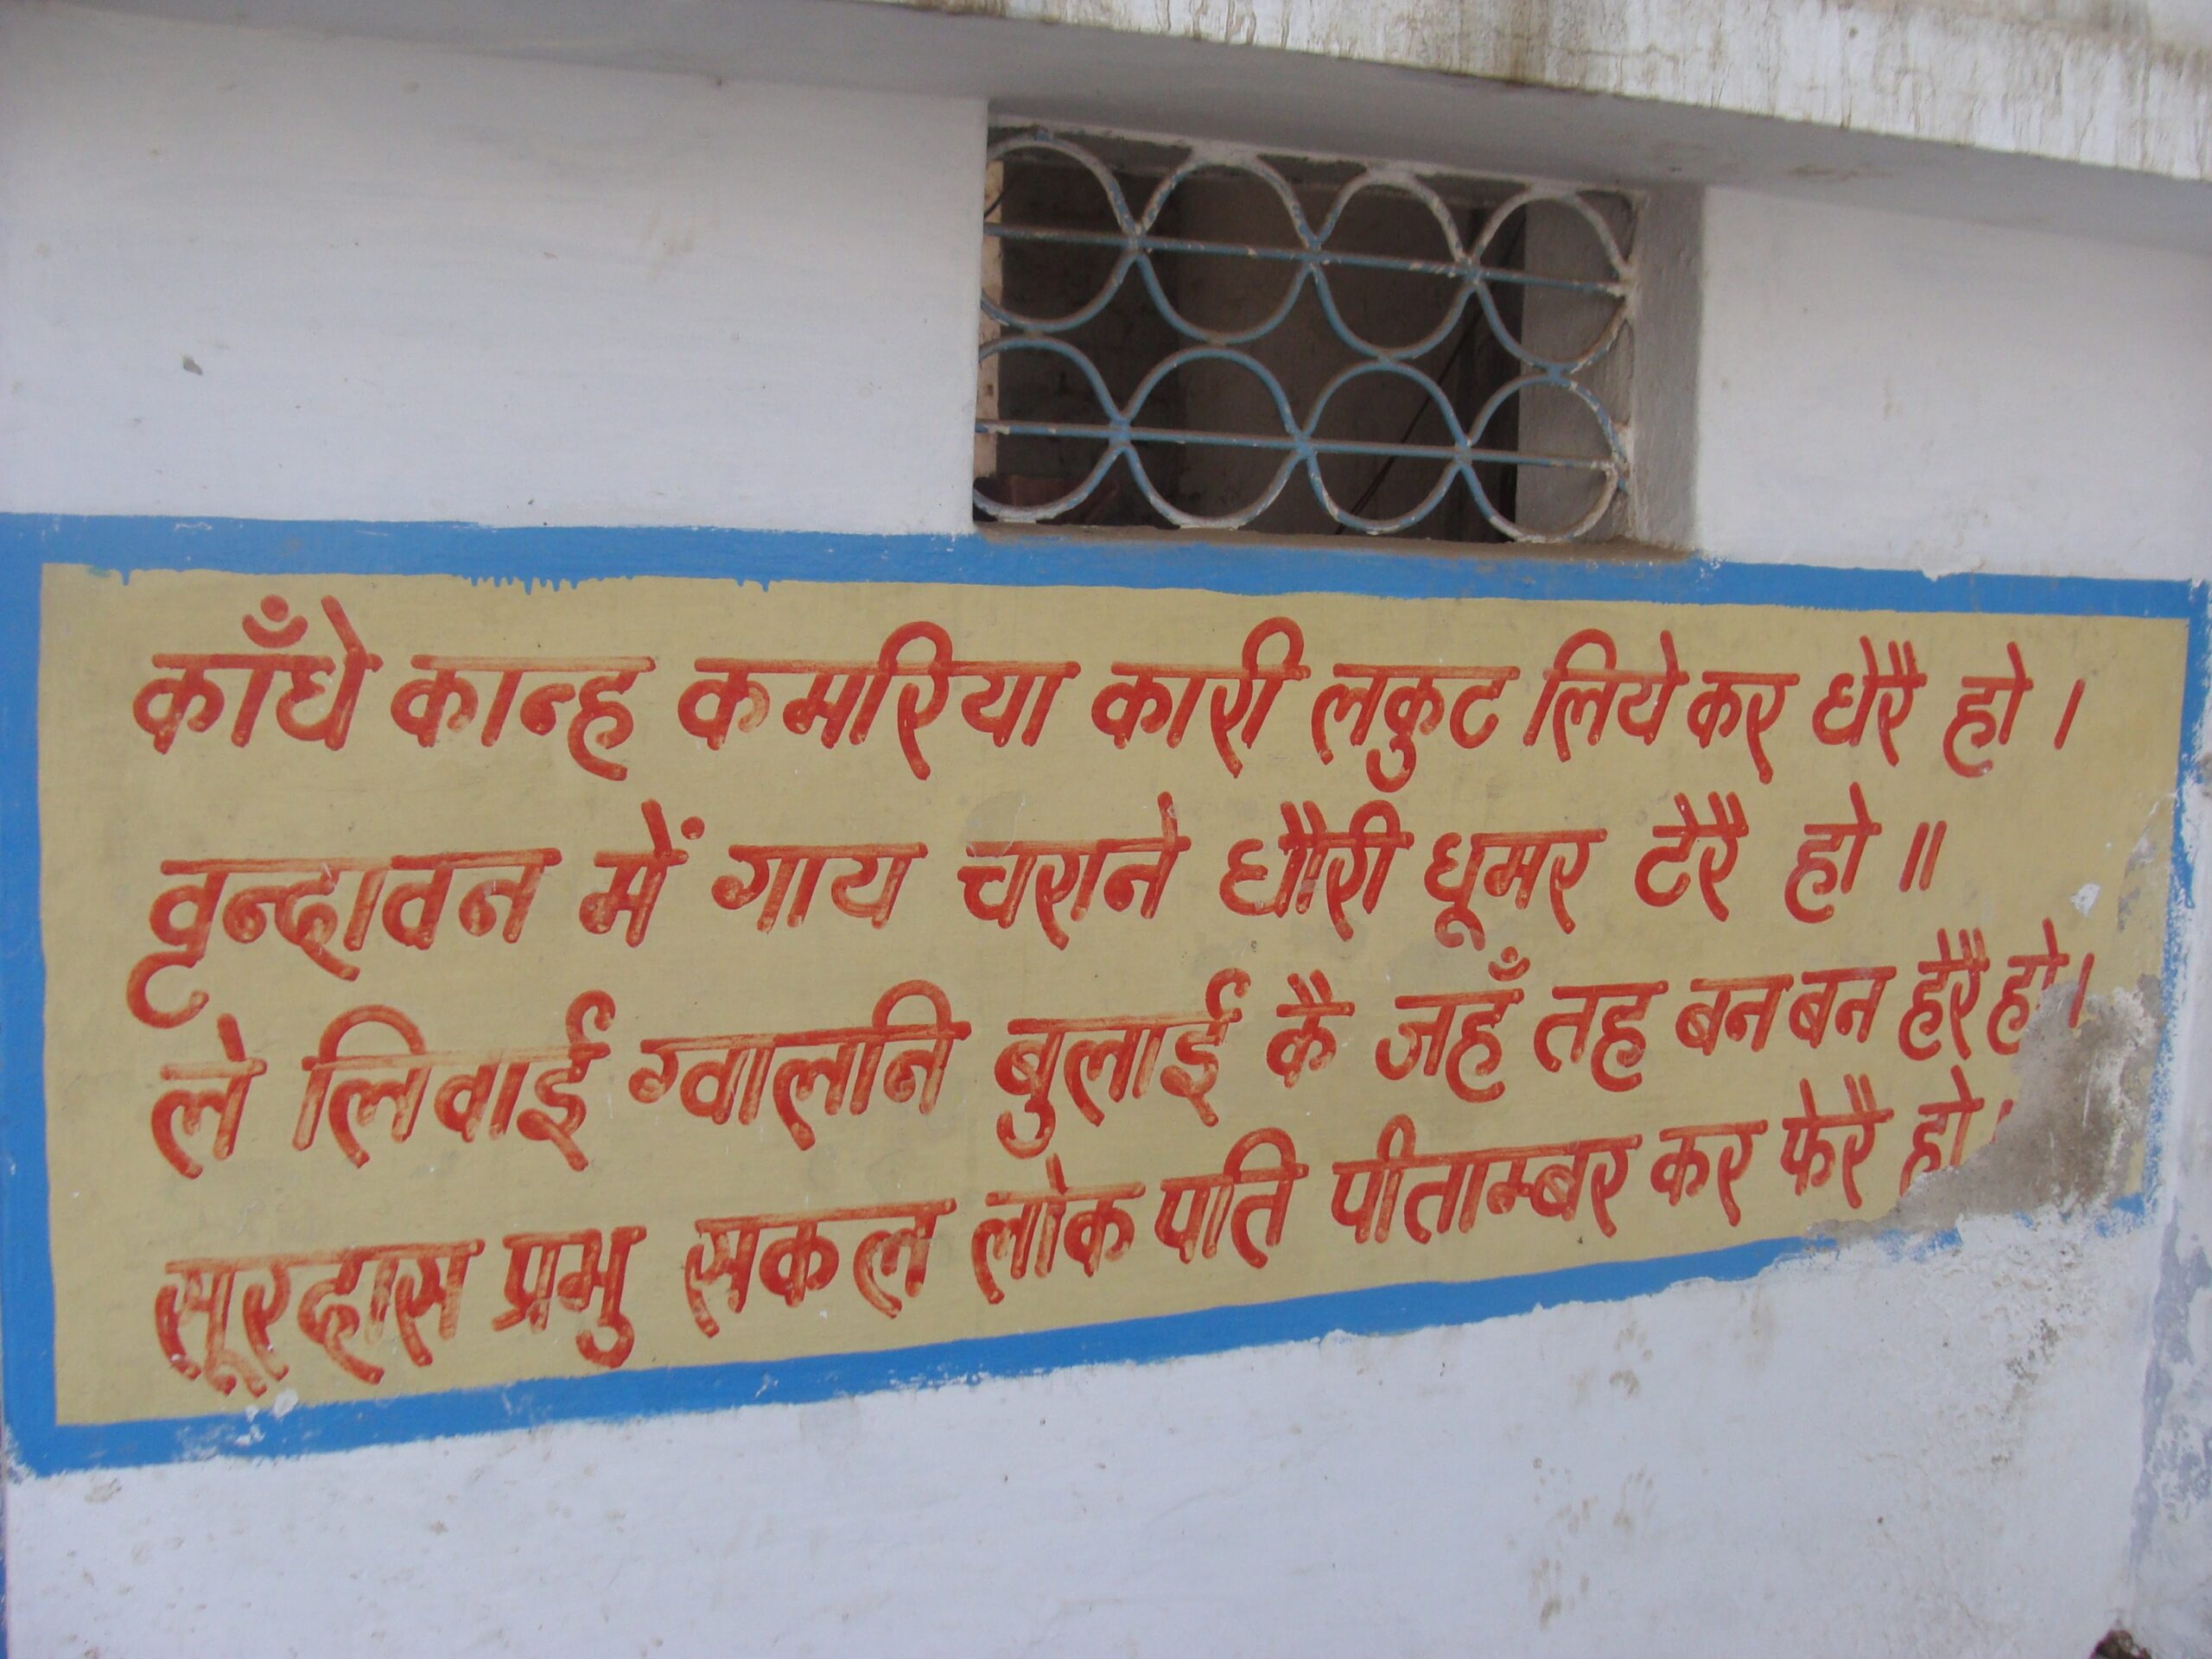 काँधे कान्ह कमरिया कारी लकुट लिये कर घेरै हो ।
वृन्दावन में गाय चराने धौरी धूमर टेरै हो ॥
ले लिवाई ग्वालनि बुलाई कै जहँ तह बन बन हेरै हो ।
सूरदास प्रभु सकल लोक पति पीताम्बर कर फेरै हो